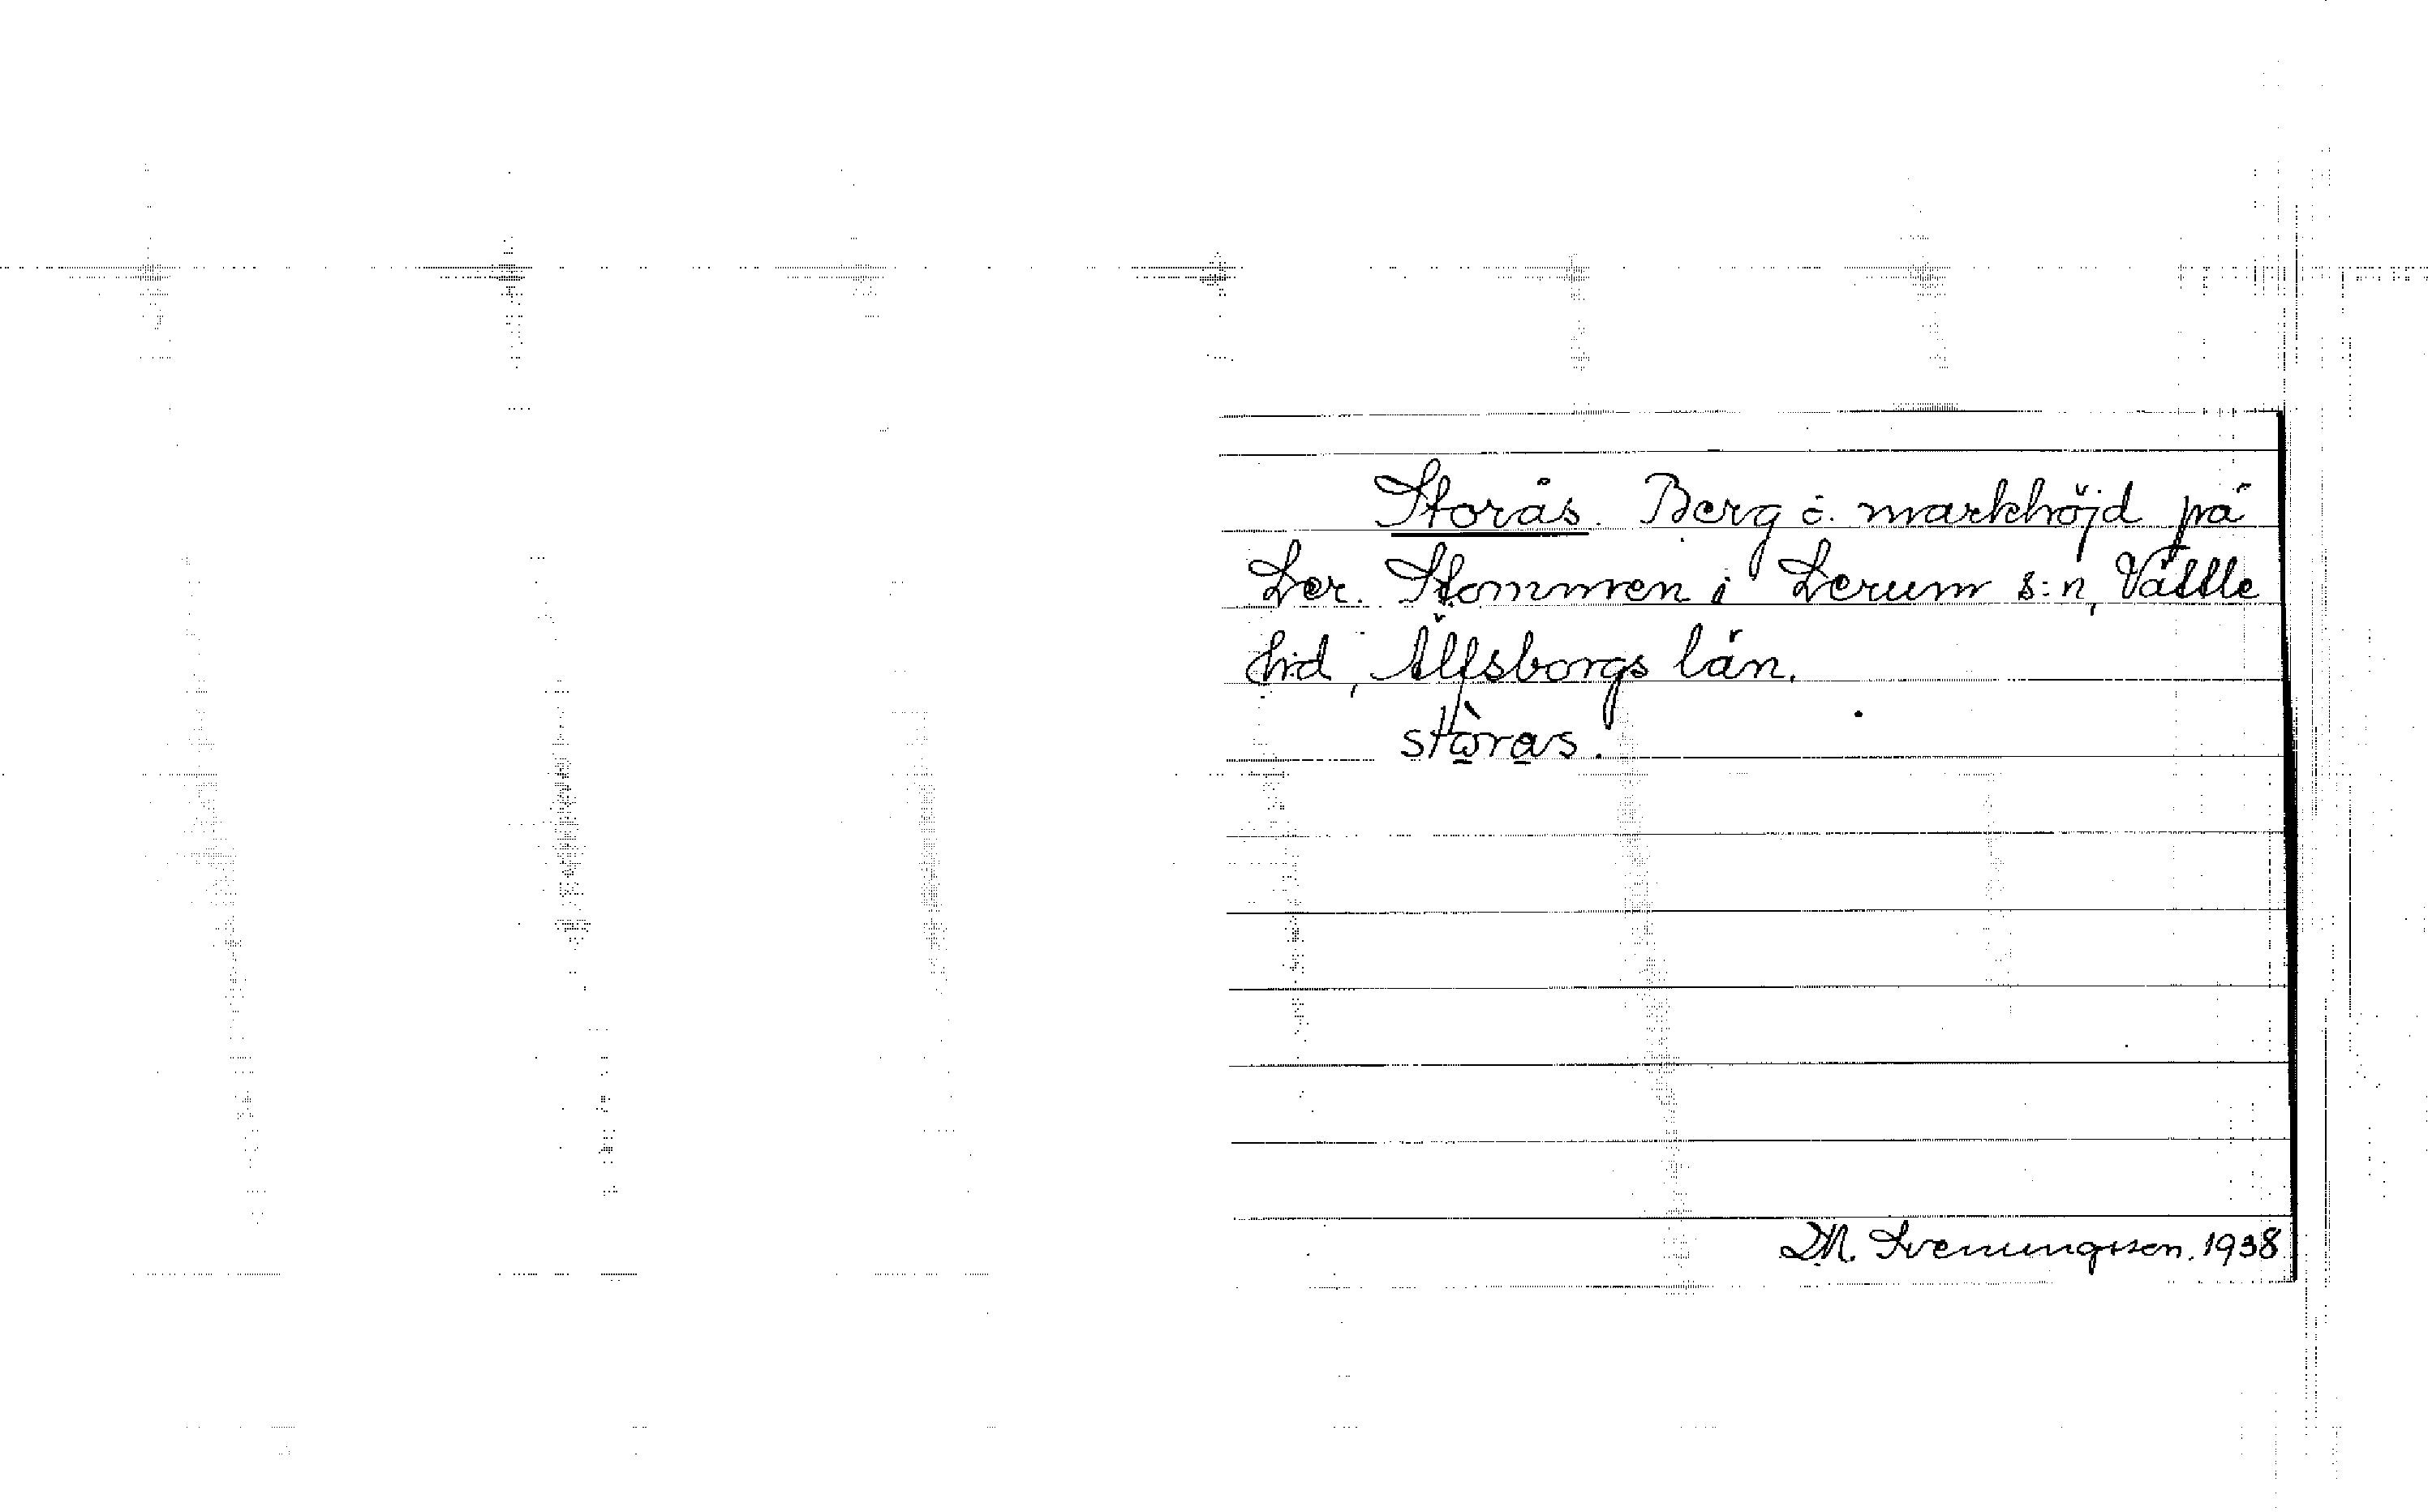 Storås. Berg o. markhöjd på
Ler. Stommen i Lerum s:n, Vättle
hd, Älfsborgs län.
stòras.
D.M. Svenungsson. 1938